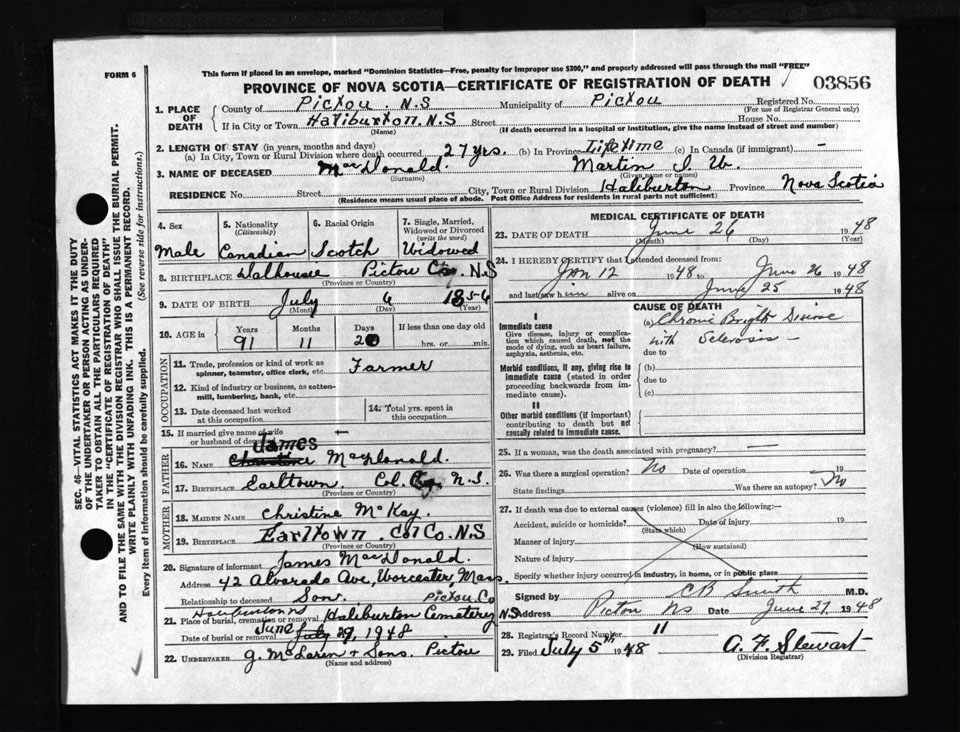 FORM 6
This form if placed in an envelope, marked "Dominion Statistics—Free, penalty for improper use $300," and properly addressed will pass through the mail "FREE"
PROVINCE OF NOVA SCOTIA—CERTIFICATE OF REGISTRATION OF DEATH
03856
SEC. 46—VITAL STATISTICS ACT MAKES IT THE DUTY
OF THE UNDERTAKER OR PERSON ACTING AS UNDER-
TAKER TO OBTAIN ALL THE PARTICULARS REQUIRED
IN THE "CERTIFICATE OF REGISTRATION OF DEATH"
AND TO FILE THE SAME WITH THE DIVISION REGISTRAR WHO SHALL ISSUE THE BURIAL PERMIT.
WRITE PLAINLY WITH UNFADING INK. THIS IS A PERMANENT RECORD.
Every item of information should be carefully supplied. (See reverse side for instructions.)
1. PLACE OF DEATH
County of Pictou N.S Municipality of Pictou Registered No.
(For use of Registrar General only)
If in City or Town Haliburton. N.S Street House No.
(Name) (If death occurred in a hospital or institution, give the name instead of street and number)
2. LENGTH OF STAY (in years, months and days)
(a) In City, Town or Rural Division where death occurred 27 yrs. (b) In Province Lifetime (c) In Canada (if immigrant) —
3. NAME OF DECEASED MacDonald. Martin I. W.
(Surname) (Given name or names)
RESIDENCE No. Street City, Town or Rural Division Haliburton Province Nova Scotia
(Residence means usual place of abode. Post Office Address for residents in rural parts not sufficient)
4. Sex
Male
5. Nationality
(Citizenship)
Canadian
6. Racial Origin
Scotch
7. Single, Married,
Widowed or Divorced
(write the word)
Widowed
8. BIRTHPLACE Dalhousie Pictou Co. N.S
(Province or Country)
9. DATE OF BIRTH July 6 1856
(Month) (Day) (Year)
10. AGE in Years Months Days If less than one day old
91 11 20 hrs. or min.
OCCUPATION
11. Trade, profession or kind of work as
spinner, teamster, office clerk, etc. Farmer
12. Kind of industry or business, as cotton-
mill, lumbering, bank, etc.
13. Date deceased last worked
at this occupation
14. Total yrs. spent in
this occupation
15. If married give name of wife
or husband of deceased —
FATHER
James
16. NAME MacDonald.
17. BIRTHPLACE Earltown. Col. Co. N.S.
(Province or Country)
MOTHER
18. MAIDEN NAME Christine McKay.
19. BIRTHPLACE Earltown. Col Co. N.S
(Province or Country)
20. Signature of informant James MacDonald.
Address 42 Alvarado Ave, Worcester, Mass.
Relationship to deceased Son. Pictou Co
21. Place of burial, cremation or removal Haliburton Cemetery NS
Haliburton NS
June
Date of burial or removal July 29, 1948
22. UNDERTAKER G. McLaren & Sons. Pictou
(Name and address)
MEDICAL CERTIFICATE OF DEATH
23. DATE OF DEATH June 26 1948
(Month) (Day) (Year)
24. I HEREBY CERTIFY that I attended deceased from:
Jan 12 1948 to June 26 1948
and last saw him alive on June 25 1948
CAUSE OF DEATH
I
Immediate cause
Give disease, injury or complica-
tion which caused death, not the
mode of dying, such as heart failure,
asphyxia, asthenia, etc.
(a) Chronic Bright Disease
with Sclerosis —
due to
Morbid conditions, if any, giving rise to
immediate cause (stated in order
proceeding backwards from im-
mediate cause).
(b)
due to
(c)
II
Other morbid conditions (if important)
contributing to death but not
causally related to immediate cause.
25. If a woman, was the death associated with pregnancy? —
26. Was there a surgical operation? No Date of operation 19
State findings Was there an autopsy? No
27. If death was due to external causes (violence) fill in also the following:—
Accident, suicide or homicide? Date of injury 19
(State which)
Manner of injury
(How sustained)
Nature of injury
Specify whether injury occurred in industry, in home, or in public place
Signed by CB Smith M.D.
Address Pictou NS Date June 27 1948
28. Registrar's Record Number 11
29. Filed July 5th 1948 A. F. Stewart
(Division Registrar)